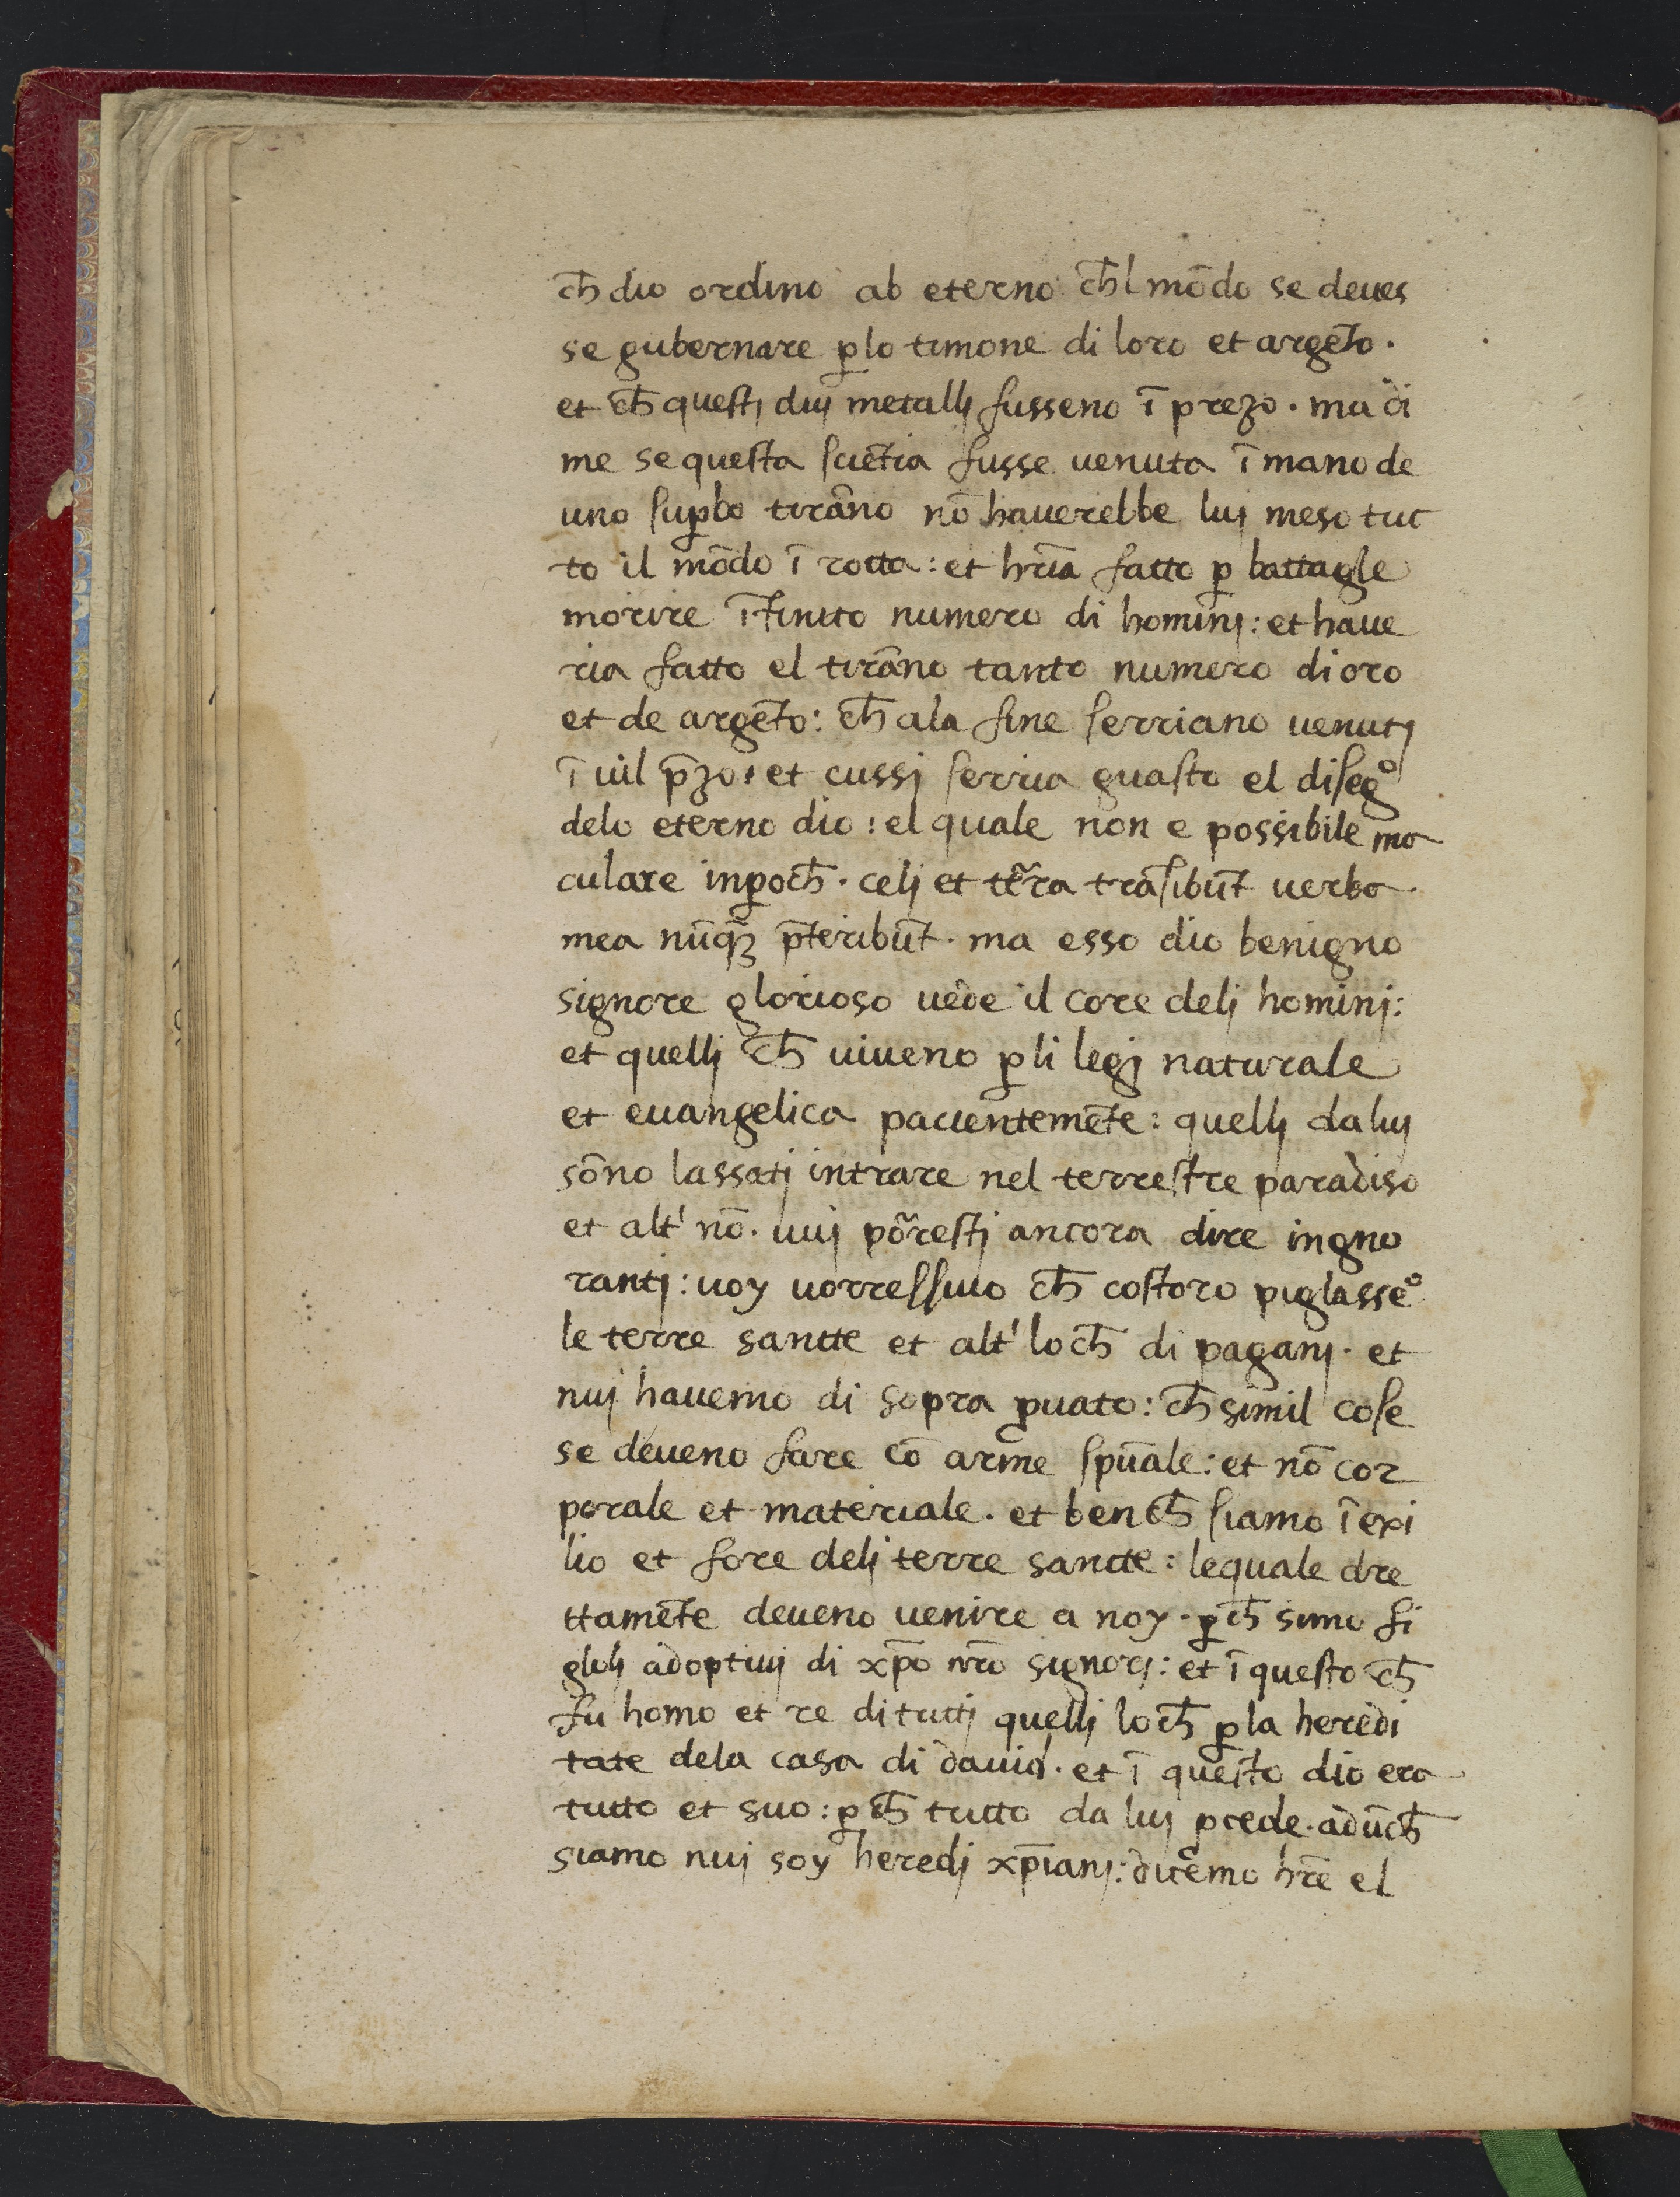 ch̄ dio ordino ab eterno ch̄l mōdo se deues
se gubernare ꝑ lo timone di loro et argēto .
et ch̄ questj duj metallj fusseno ī prezo . ma di
me se questa sciētia fusse uenuta ī mano de
uno suꝑbo tirāno nō hauerebbe luj meso tut
to il mōdo ī rotta : et hr̄ia fatto ꝑ battagle
morire īfinito numero di hominj : et haue
ria fatto el tirāno tanto numero di oro
et de argēto : ch̄ ala fine serriano uenutj
ī uil p̄zo : et cussj serria guasto el disegº
delo eterno dio : el quale non e possibile ma
culare in ꝑoch̄ . celj et tēra trāsibūt uerba
mea nūqꝫ p̄teribūt . ma esso dio benigno
signore glorioso uede il core delj hominj :
et quellj ch̄ uiueno ꝑ li legj naturale
et euangelica pacientemēte : quellj da luj
sōno lassatj intrare nel terrestre paradiso
et altⁱ nō . uuj pōrestj ancora dire ingno
rantj : uoy uorressiuo ch̄ costoro piglasseº
le terre sancte et altⁱ loch̄ di paganj . et
nuj hauemo di sopra ꝓuato : ch̄ simil cose
se deueno fare cō arme sp̄uale : et nō cor
porale et materiale . et bench̄ siamo ī exi
lio et fore delj terre sancte : lequale dre
ttamēte deueno uenire a noy . ꝑch̄ simo fi
gliolj adoptiuj di xp̄o nr̄o signorj : et ī questo ch̄
fu homo et re di tuttj quellj loch̄ ꝑ la heredi
tate dela casa di dauid . et ī questo dio era
tutto et suo : ꝑch̄ tutto da luj ꝓcede . adūch̄
siamo nuj soy heredj xp̄ianj : diuēmo hr̄e el